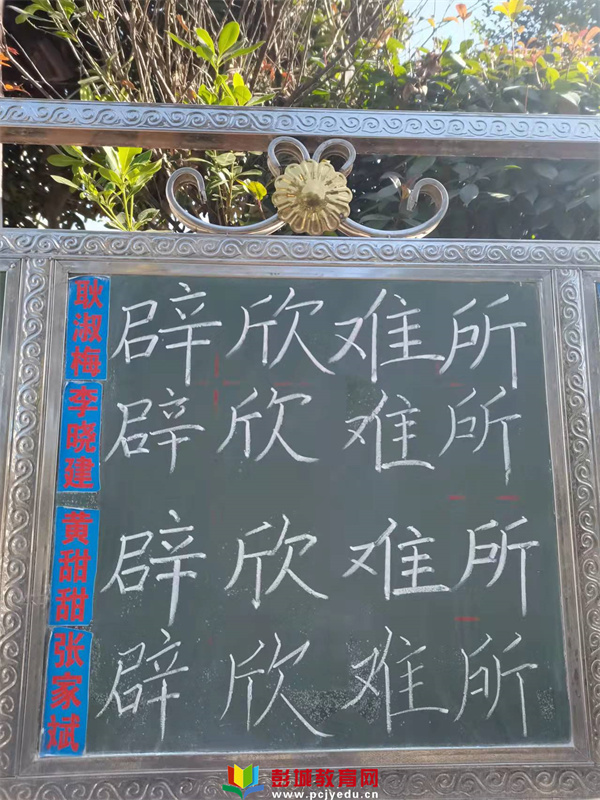 耿淑梅 辟欣难所
李晓建 辟欣难所
黄甜甜 辟欣难所
张家斌 辟欣难所
彭城教育网
www.pcjyedu.cn